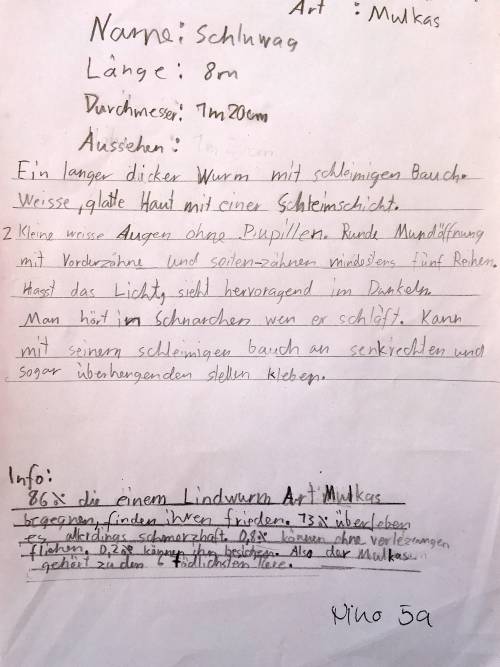 Art : Mulkas
Name: Schluwag
Länge: 8m
Durchmesser: 1m20cm
Aussehen:
Ein langer dicker Wurm mit schleimigen Bauch.
Weisse, glatte Haut mit einer Schleimschicht.
2 Kleine weisse Augen ohne Pupillen. Runde Mundöffnung
mit Vorderzähne und seiten-zähnen mindestens fünf Reihen.
Hasst das Licht, sieht hervoragend im Dunkeln.
Man hört im Schnarchen wen er schläft. Kann
mit seinem schleimigen bauch an senkrechten und
sogar überhergenden stellen kleben.
Info:
86% die einem Lindwurm Art Mulkas
begegnen, finden ihren frieden. 13% überleben
es allerdings schmerzhaft. 0,8% können ohne verletzungen
fliehen. 0,2% können ihn besiehen. Also der Mulkas
gehört zu den 6 tödlichsten tiere.
Nino 5a